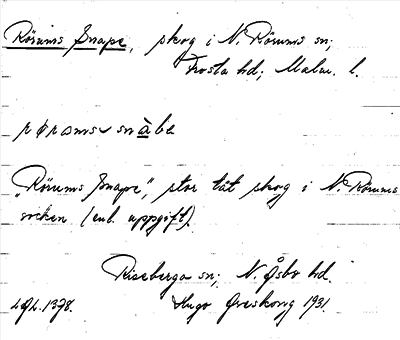 Rörums Snape, skog i N. Rörums sn;
Frosta hd; Malm. l.
rørams snàba
"Rörums Snape", stor tät skog i N. Rörums
socken (enl. uppgift).
Riseberga sn; N. Åsbo hd.
Hugo Areskoug 1931.